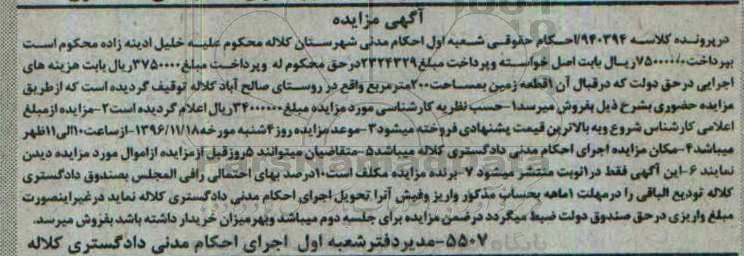 آگهی مزایده
در پرونده کلاسه ۹۴۰۳۹۴/احکام حقوقی شعبه اول احکام مدنی شهرستان کلاله محکوم علیه خلیل ادینه زاده محکوم است
بپرداخت۷۵۰۰۰۰/ ریال بابت اصل خواسته وپرداخت مبلغ۲۳۲۴۳۲۹درحق محکوم له وپرداخت مبلغ۳۷۵۰۰۰۰ریال بابت هزینه های
اجرایی درحق دولت که درقبال آن ۱قطعه زمین بمساحت۲۰۰مترمربع واقع در روستای صالح آباد کلاله توقیف گردیده است که ازطریق
مزایده حضوری بشرح ذیل بفروش میرسد۱-حسب نظریه کارشناسی مورد مزایده مبلغ۳۴۰۰۰۰۰۰ریال اعلام گردیده است۲-مزایده ازمبلغ
اعلامی کارشناس شروع وبه بالاترین قیمت پیشنهادی فروخته میشود۳-موعد مزایده روز۴شنبه مورخه۱۳۹۶/۱۱/۱۸-ازساعت۱۰الی۱۱ظهر
میباشد۴-مکان مزایده اجرای احکام مدنی دادگستری کلاله میباشد۵-متقاضیان میتوانند ۵روزقبل ازمزایده ازاموال مورد مزایده دیدن
نمایند ۶-این آگهی فقط در۱نوبت منتشر میشود ۷-برنده مزایده مکلف است۱۰درصد بهای احتمالی رافی المجلس بصندوق دادگستری
کلاله تودیع الباقی را درمهلت ۱ماهه بحساب مذکور واریز وفیش آنرا تحویل اجرای احکام مدنی دادگستری کلاله نماید درغیراینصورت
مبلغ واریزی درحق صندوق دولت ضبط میگردد درضمن مزایده برای جلسه دوم میباشد وبهرمیزان خریدار داشته باشد بفروش میرسد.
۵۵۰۷-مدیردفترشعبه اول اجرای احکام مدنی دادگستری کلاله